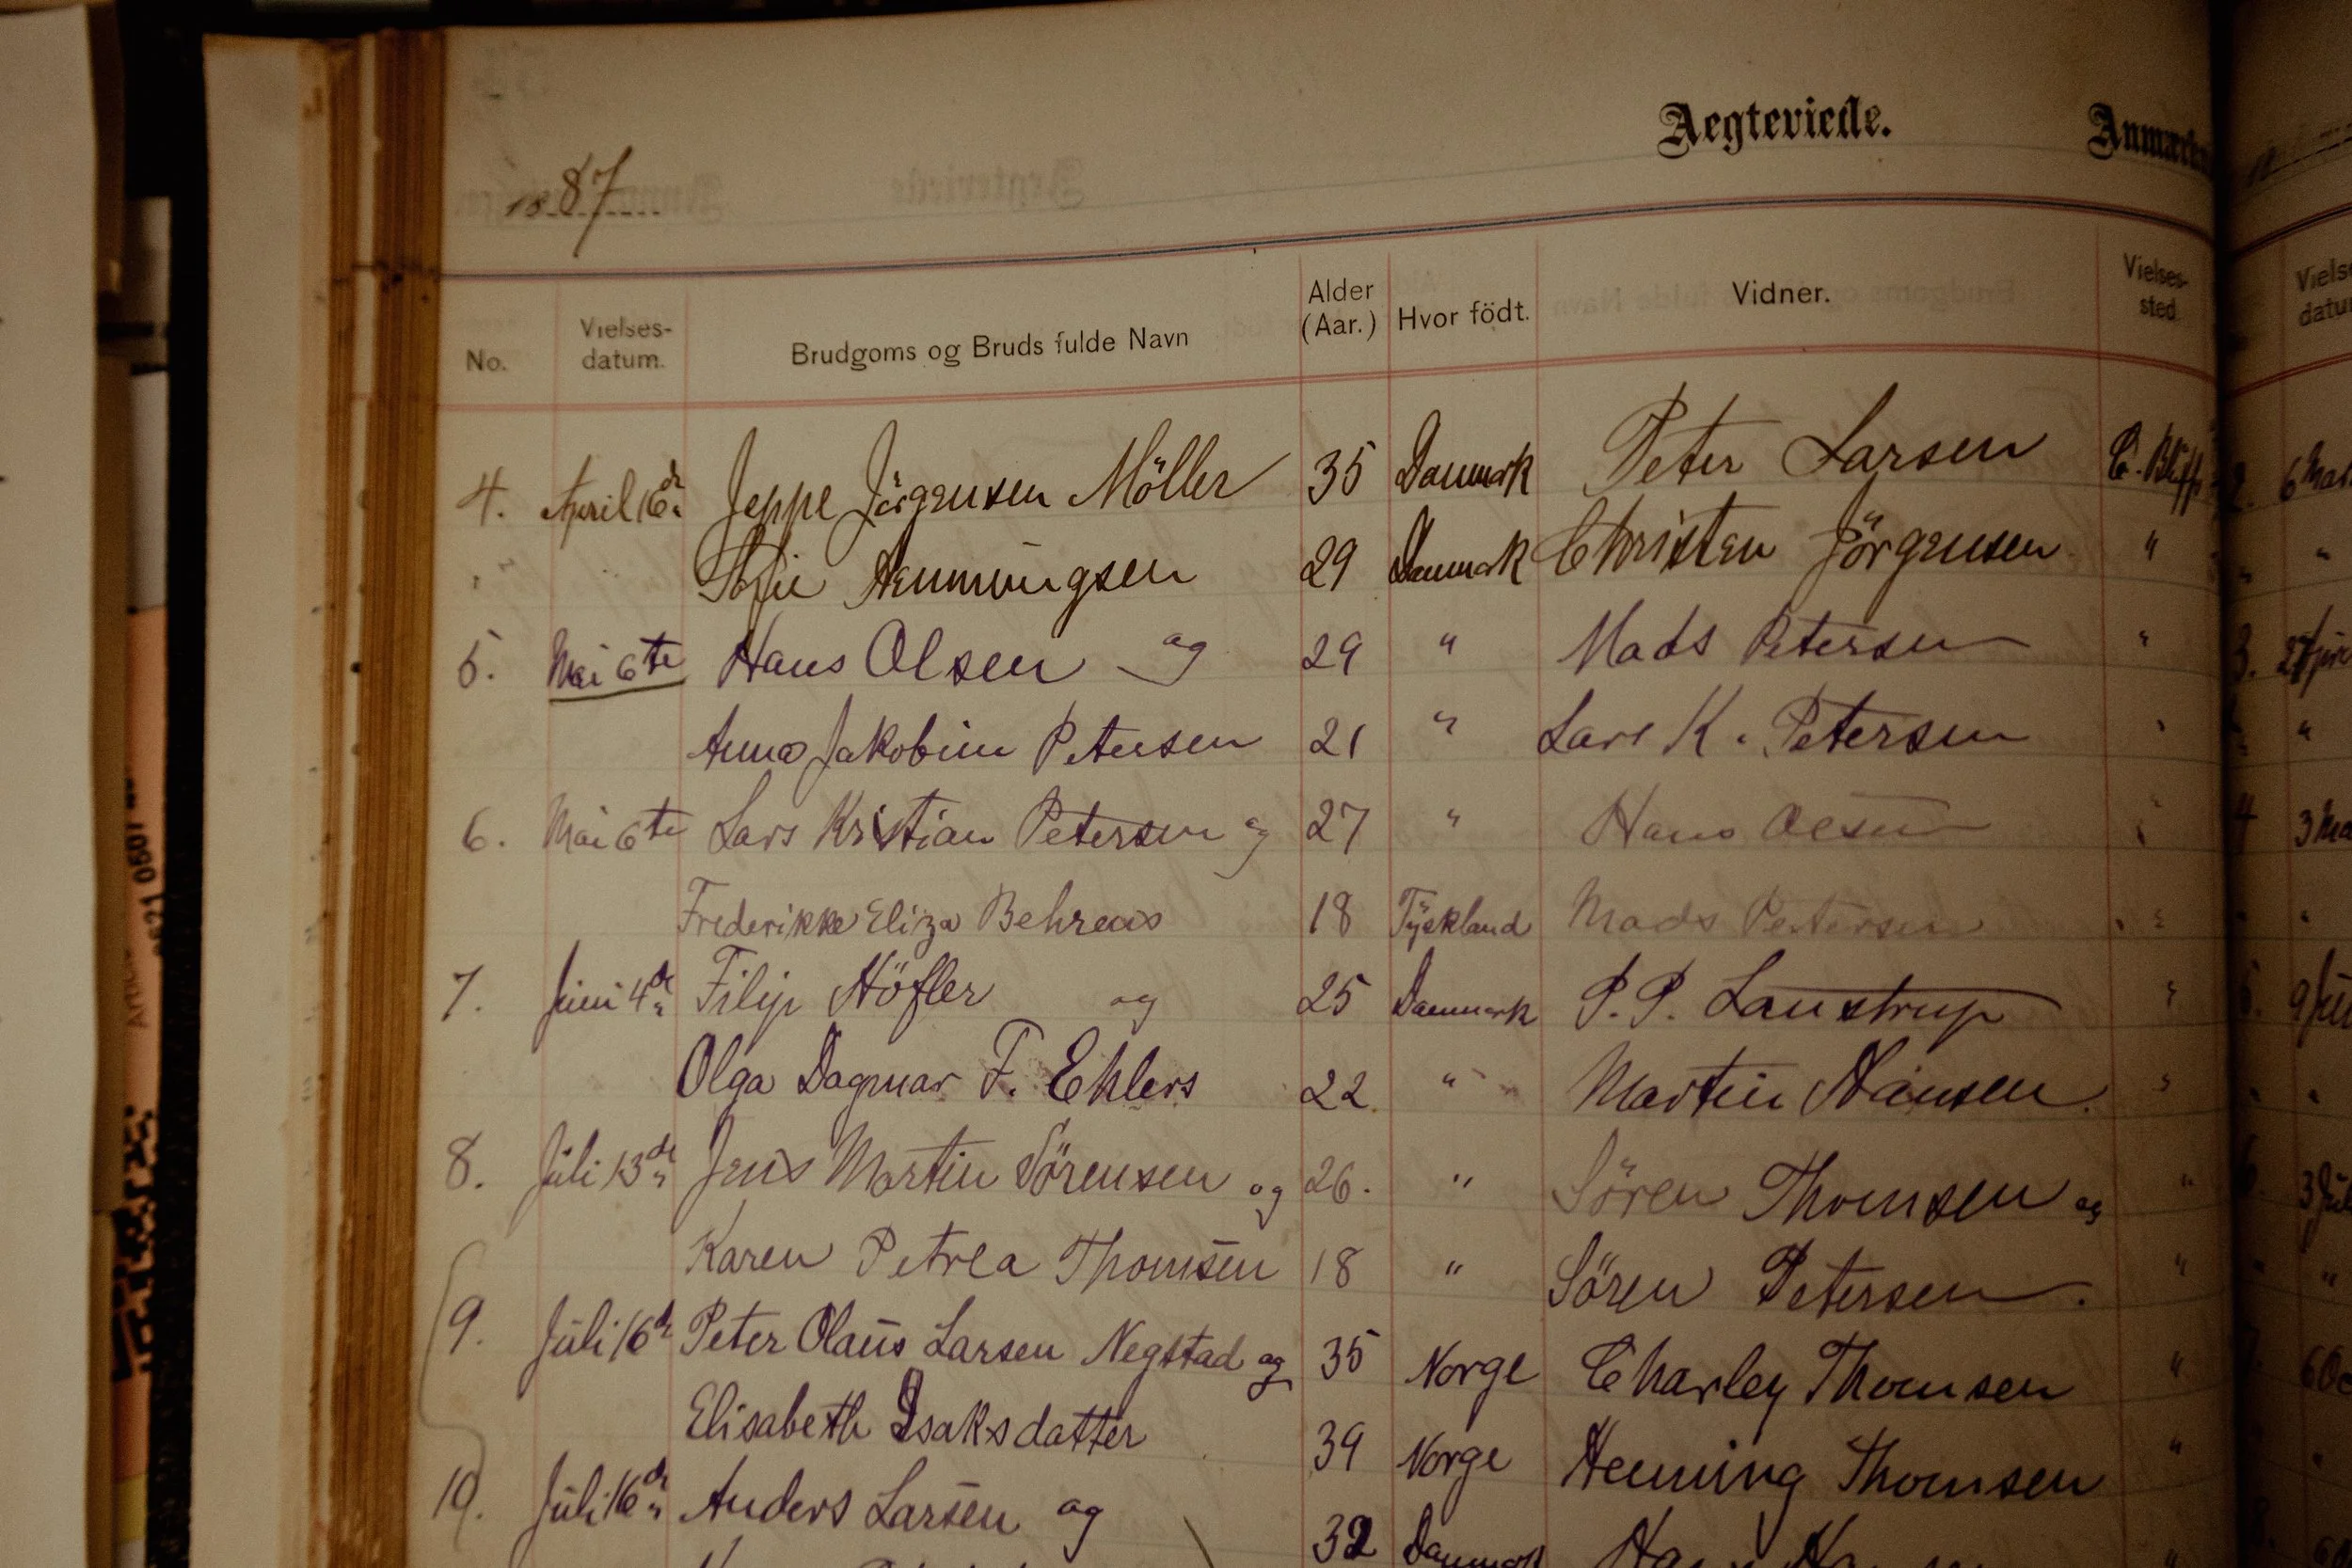 1887
Aegteviede.
No. Vielses-datum. Brudgoms og Bruds fulde Navn Alder (Aar.) Hvor födt. Vidner. Vielses-sted
4. April 16de Jeppe Jörgensen Möller 35 Danmark Peter Larsen C. Bluffs
Sofie Henningsen 29 Danmark Christen Jörgensen "
5. Mai 6te Hans Olsen og 29 " Mads Petersen "
Anna Jakobine Petersen 21 " Lars K. Petersen "
6. Mai 6te Lars Kristian Petersen og 27 " Hans Olsen "
Frederikke Eliza Behrens 18 Tyskland Mads Petersen "
7. Juni 4de Filip Höfler og 25 Danmark P. P. Laustrup "
Olga Dagmar F. Ehlers 22 " Martin Hansen. "
8. Juli 13de Jens Martin Sörensen og 26. " Sören Thomsen og "
Karen Petrea Thomsen 18 " Sören Petersen. "
9. Juli 16de Peter Olaus Larsen Negstad og 35 Norge Charley Thomsen "
Elisabeth Isaksdatter 39 Norge Henning Thomsen "
10. Juli 16de Anders Larsen og 32 Danmark